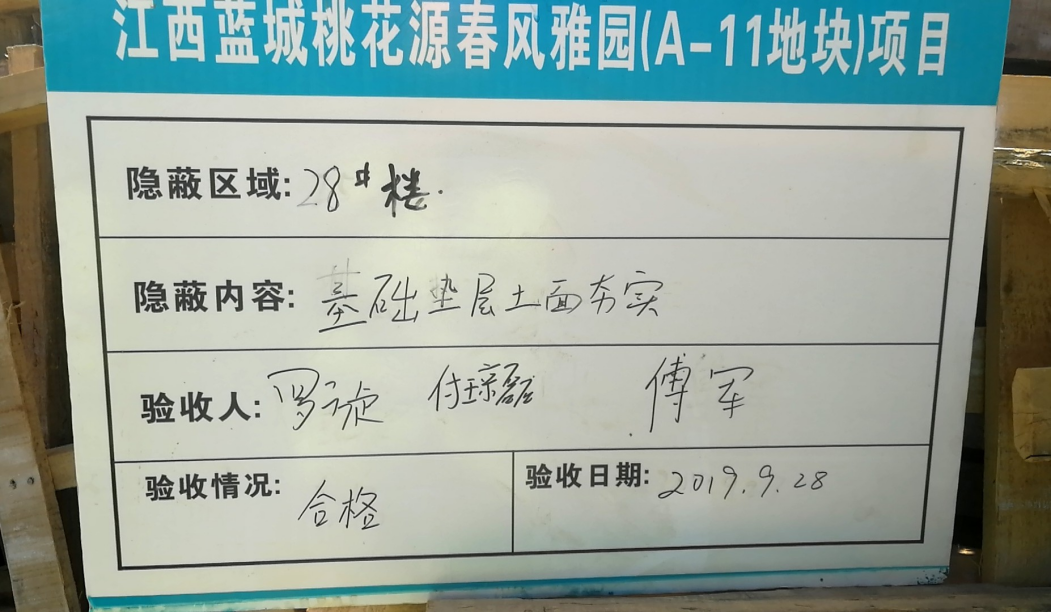 江西蓝城桃花源春风雅园(A-11地块)项目
隐蔽区域: 28#楼.
隐蔽内容: 基础垫层土面夯实
验收人: 罗旋 付琼磊 傅军
验收情况: 合格
验收日期: 2019.9.28